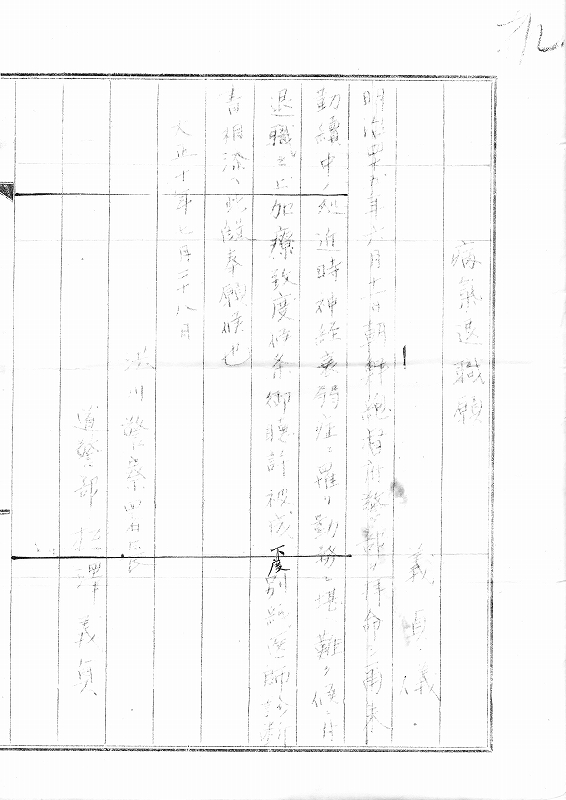 病氣退職願
義貞儀
明治四十五年六月十一日朝鮮總督府警部ヲ拝命シ爾来
勤續中ノ処近時神経衰弱症ニ罹リ勤務ニ堪ヘ難ク候ニ付
退職ノ上加療致度候条御聴許被成下度別紙医師診断
書相添ヘ此段奉願候也
大正十年七月二十八日
洪川警察署長
道警部 澤義貞